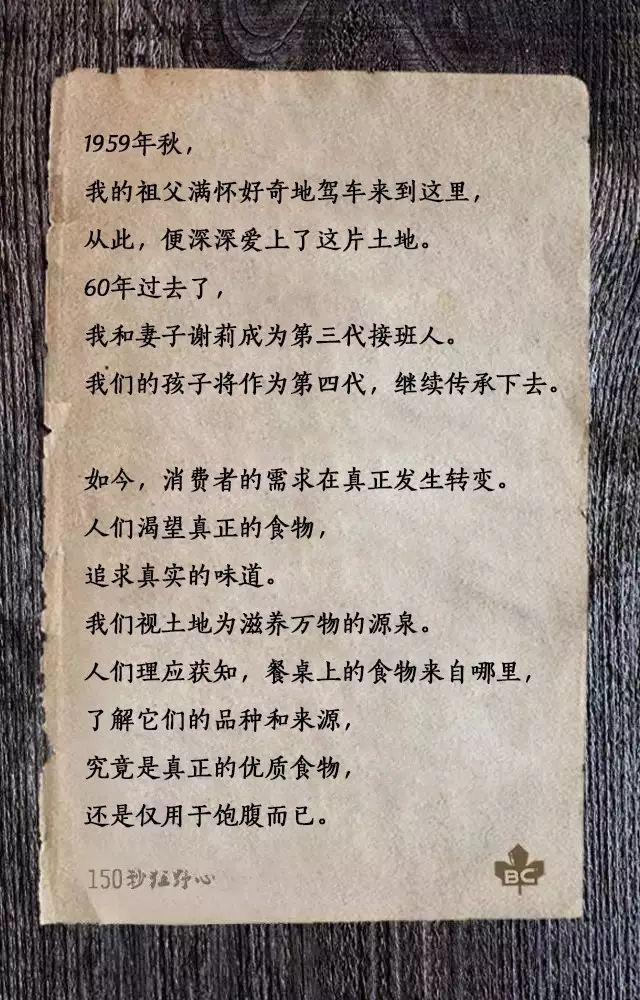 1959年秋，
我的祖父满怀好奇地驾车来到这里，
从此，便深深爱上了这片土地。
60年过去了，
我和妻子谢莉成为第三代接班人。
我们的孩子将作为第四代，继续传承下去。
如今，消费者的需求在真正发生转变。
人们渴望真正的食物，
追求真实的味道。
我们视土地为滋养万物的源泉。
人们理应获知，餐桌上的食物来自哪里，
了解它们的品种和来源，
究竟是真正的优质食物，
还是仅用于饱腹而已。
150秒狂野心
BC